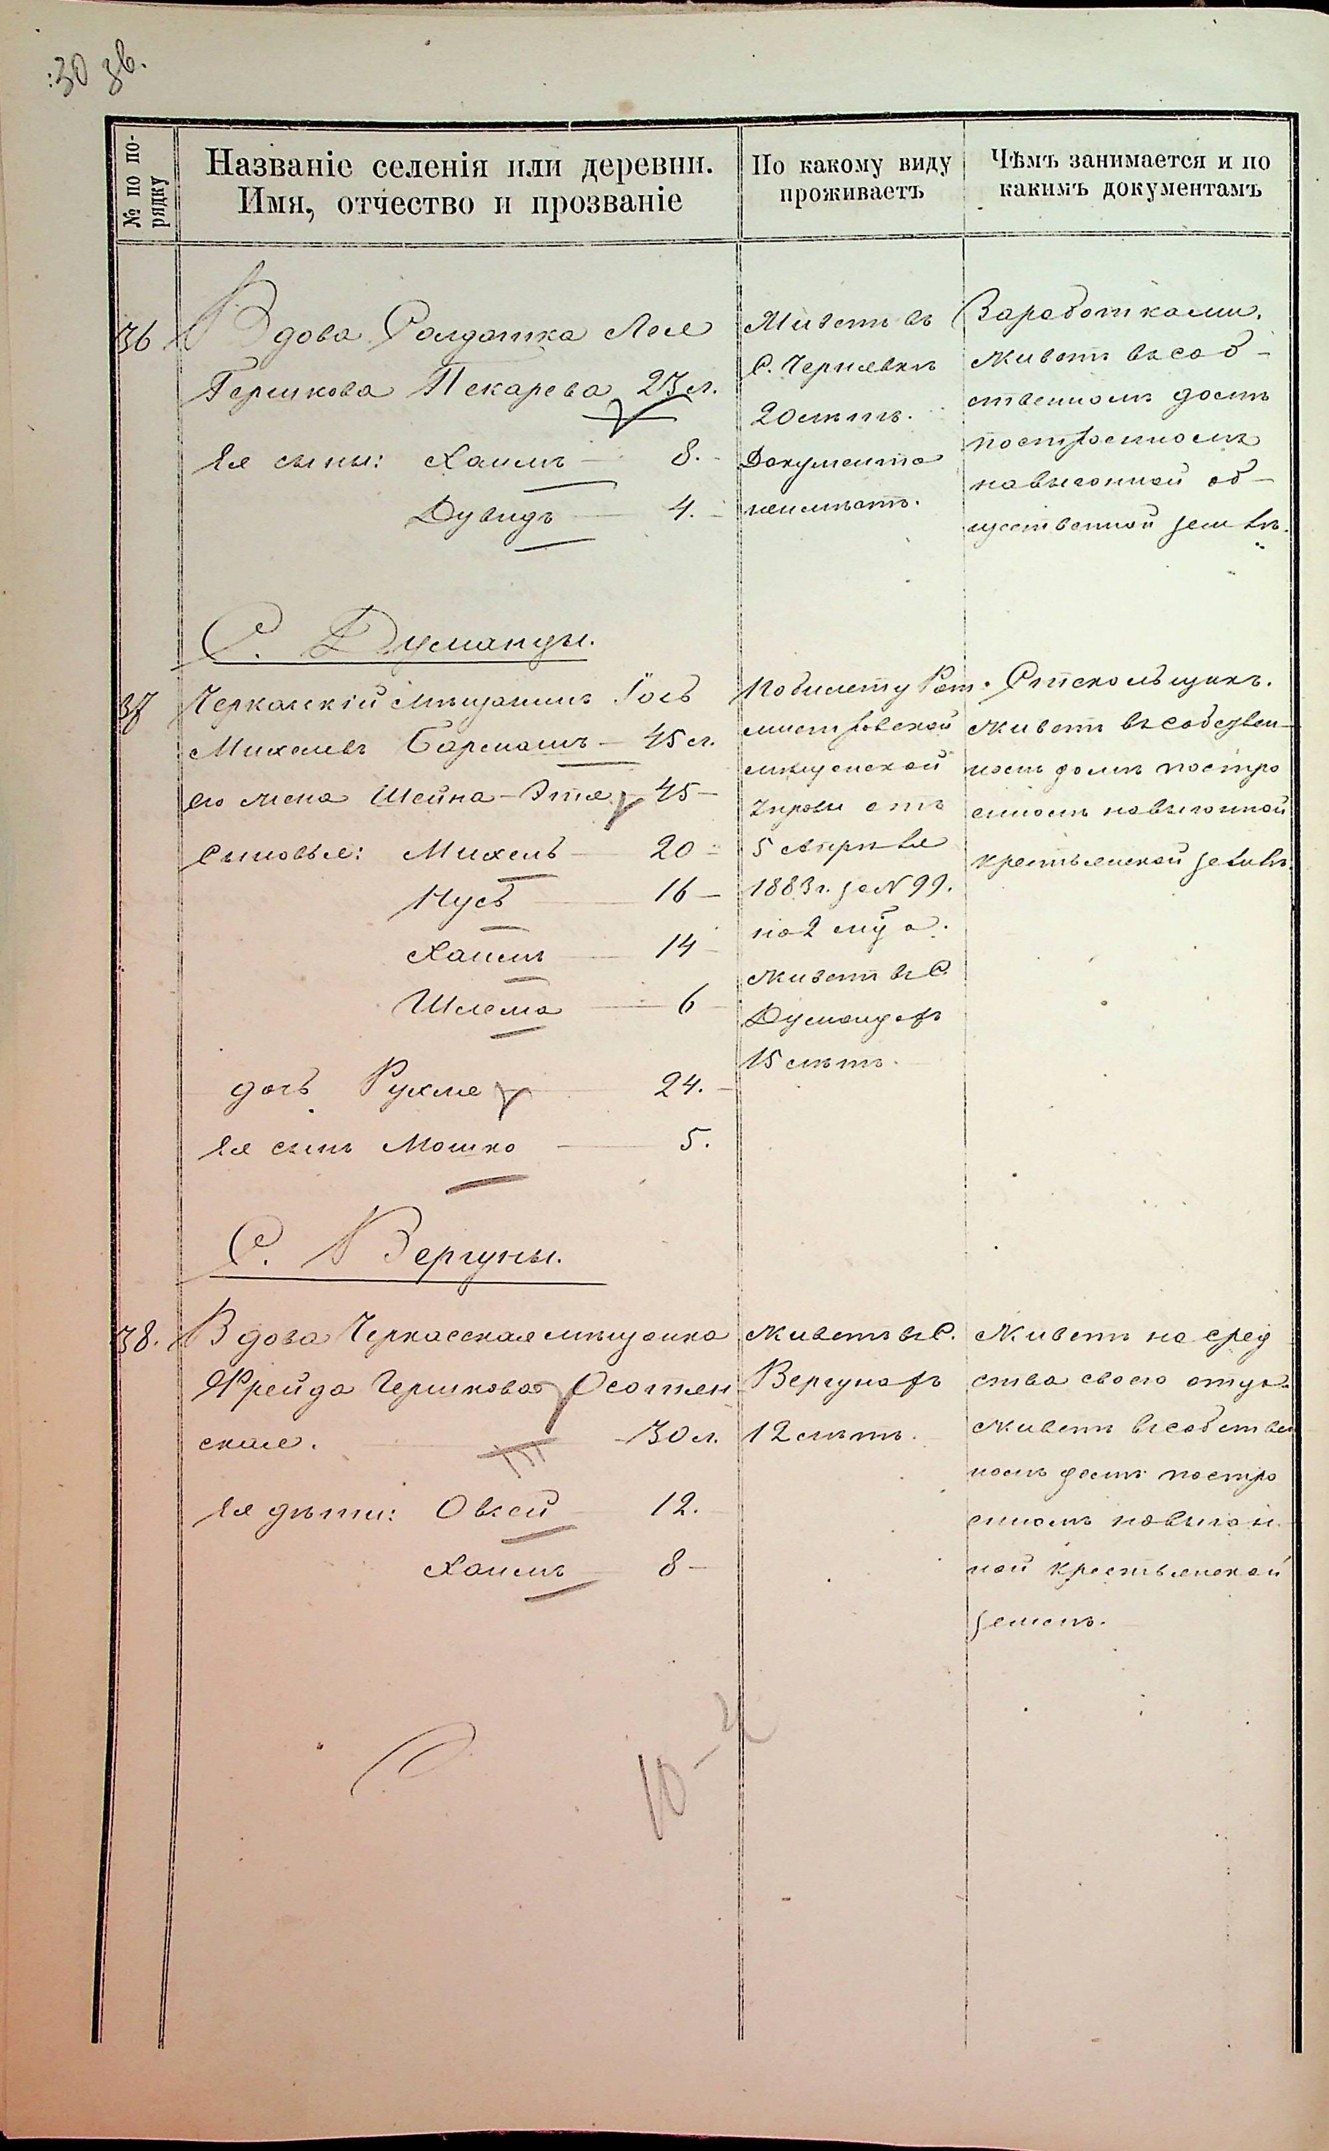 30 зв.
№ по по-
рядку
Названіе селенія или деревни.
Имя, отчество и прозваніе
По какому виду
проживаетъ
Чѣмъ занимается и по
какимъ документамъ
36
Вдова Солдатка Лея
Гершкова Пекарева 23 л.
Ея сыны: Хаимъ — 8.
Дувидъ — 4.
Живетъ въ
С. Чернявкѣ
20 лѣтъ.
Документа
неимѣетъ.
Заработками.
Живетъ въ соб-
ственномъ домѣ
построенномъ
на выгонной об-
щественной землѣ.
С. Думанцы.
37
Черкасскій мѣщанинъ Іось
Михелевъ Барманъ — 45 л.
его жена Шейна-Этля 45 —
Сыновья: Михель — 20 —
Нусь — 16 —
Хаимъ — 14 —
Шлема — 6 —
дочь Рухля — 24. —
Ея сынъ Мошко — 5.
По билету Рот-
мистровской
мѣщанской
Управы отъ
5 Апрѣля
1883 г. за N 99.
на 2 м-ца.
Живетъ въ С.
Думанцахъ
15 лѣтъ.
Стекольщикъ.
Живетъ въ собствен-
номъ домѣ постро
енномъ на выгонной
крестьянской землѣ.
С. Вергуны.
38.
Вдова Черкасская мѣщанка
Фрейда Гершкова Осотян
ская. — 30 л.
Ея дѣти: Овсей — 12.
Хаимъ — 8 —
Живетъ въ С.
Вергунахъ
12 лѣтъ.
Живетъ на сред
ства своего отца.
Живетъ въ собствен
номъ домѣ постро
енномъ на выгон
ной крестьянской
землѣ.
10 —